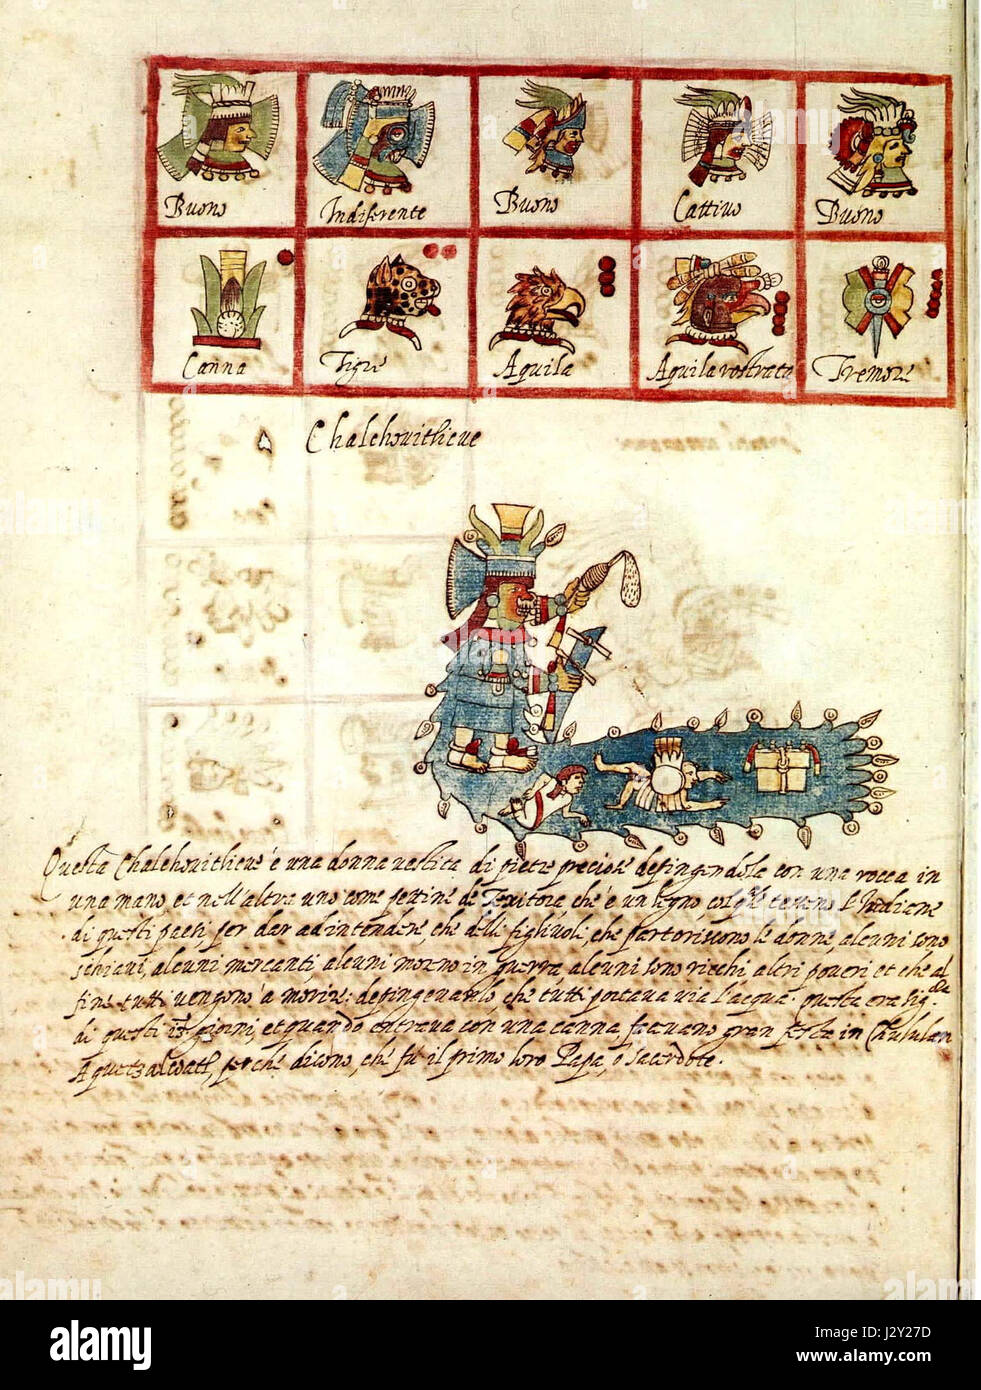 Buono Indiferente Buono Cattiuo Buono
Canna Tigre Aquila Aquila rostrata Tremore
Chalchouitlicue
Questa Chalchouitlicue é una donna uestita di pietre preciose depingendola con una rocca in
una mano, et nell'altra uno come pettine de Texitora, che é un legno, col qle texeno le Indiane
di questi paesi, per dar ad intendere, che delli figliuoli, che partoriscono le donne, alcuni sono
schiaui, alcuni mercanti alcuni morno in guerra alcuni sono ricchi altri poueri et che al
fine tutti uengono a morire: depingeuanlo, che tutti portaua uia l'acqua. questa era sig.
di questi 13 giorni, et quando entraua con una canna faceuano gran festa in Chululan
A quetzalcoatl, perché dicono, che fu il primo loro Papa, o sacerdote.
alamy
alamy stock photo
J2Y27D
www.alamy.com